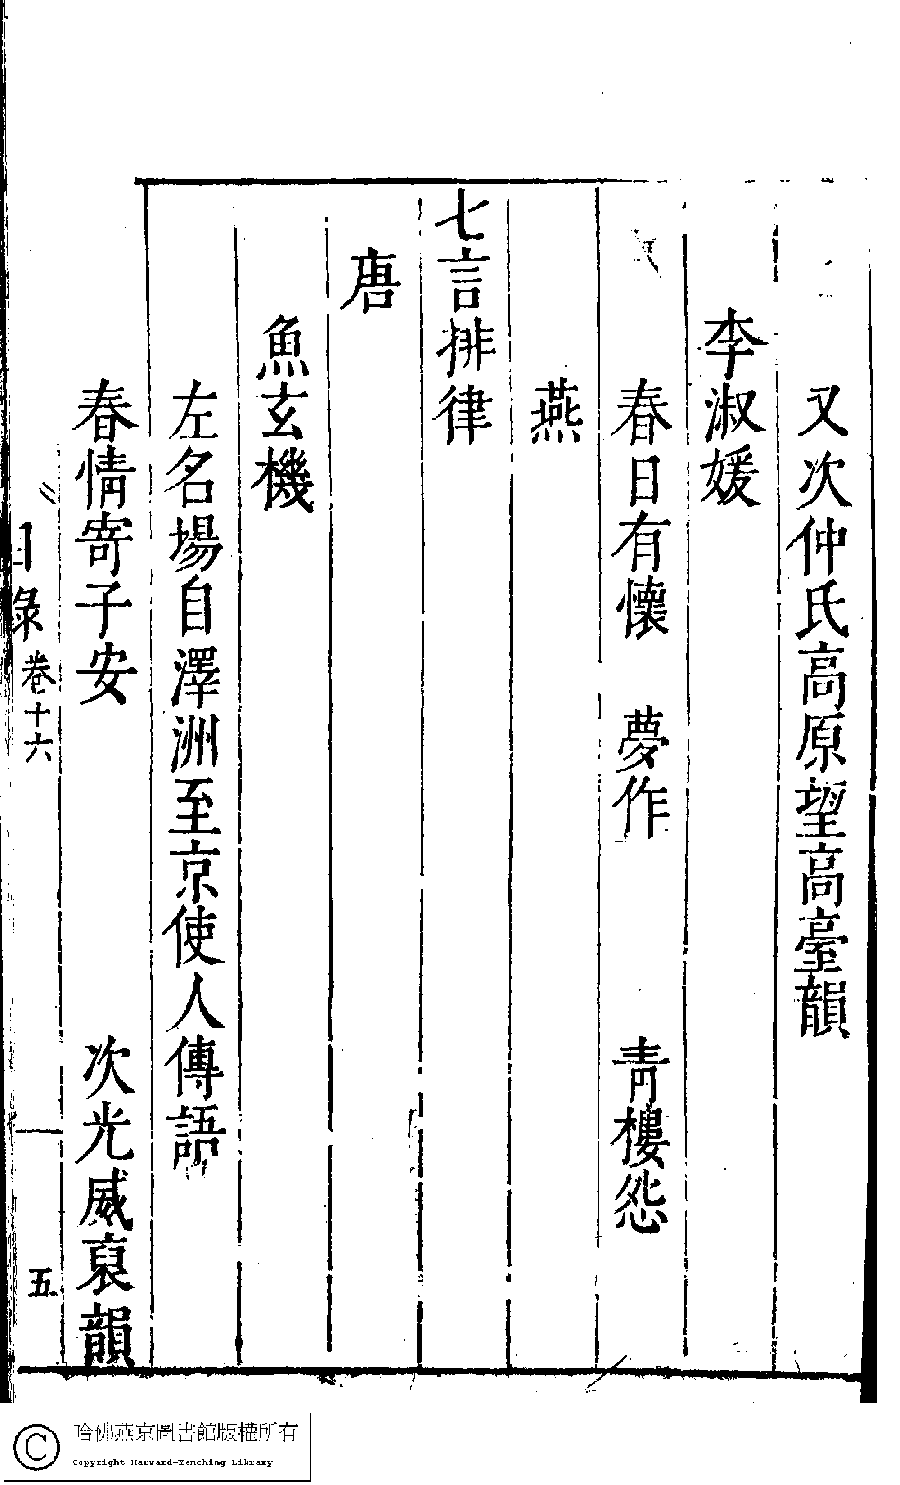 又次仲氏高原望高臺韻
李淑媛
春日有懷　夢作　青樓怨
燕
七言排律
唐
魚玄機
左名場自澤洲至京使人傳語
春情寄子安　次光威裒韻
目錄 卷十六 五
哈佛燕京圖書館版權所有
Copyright Harvard-Yenching Library